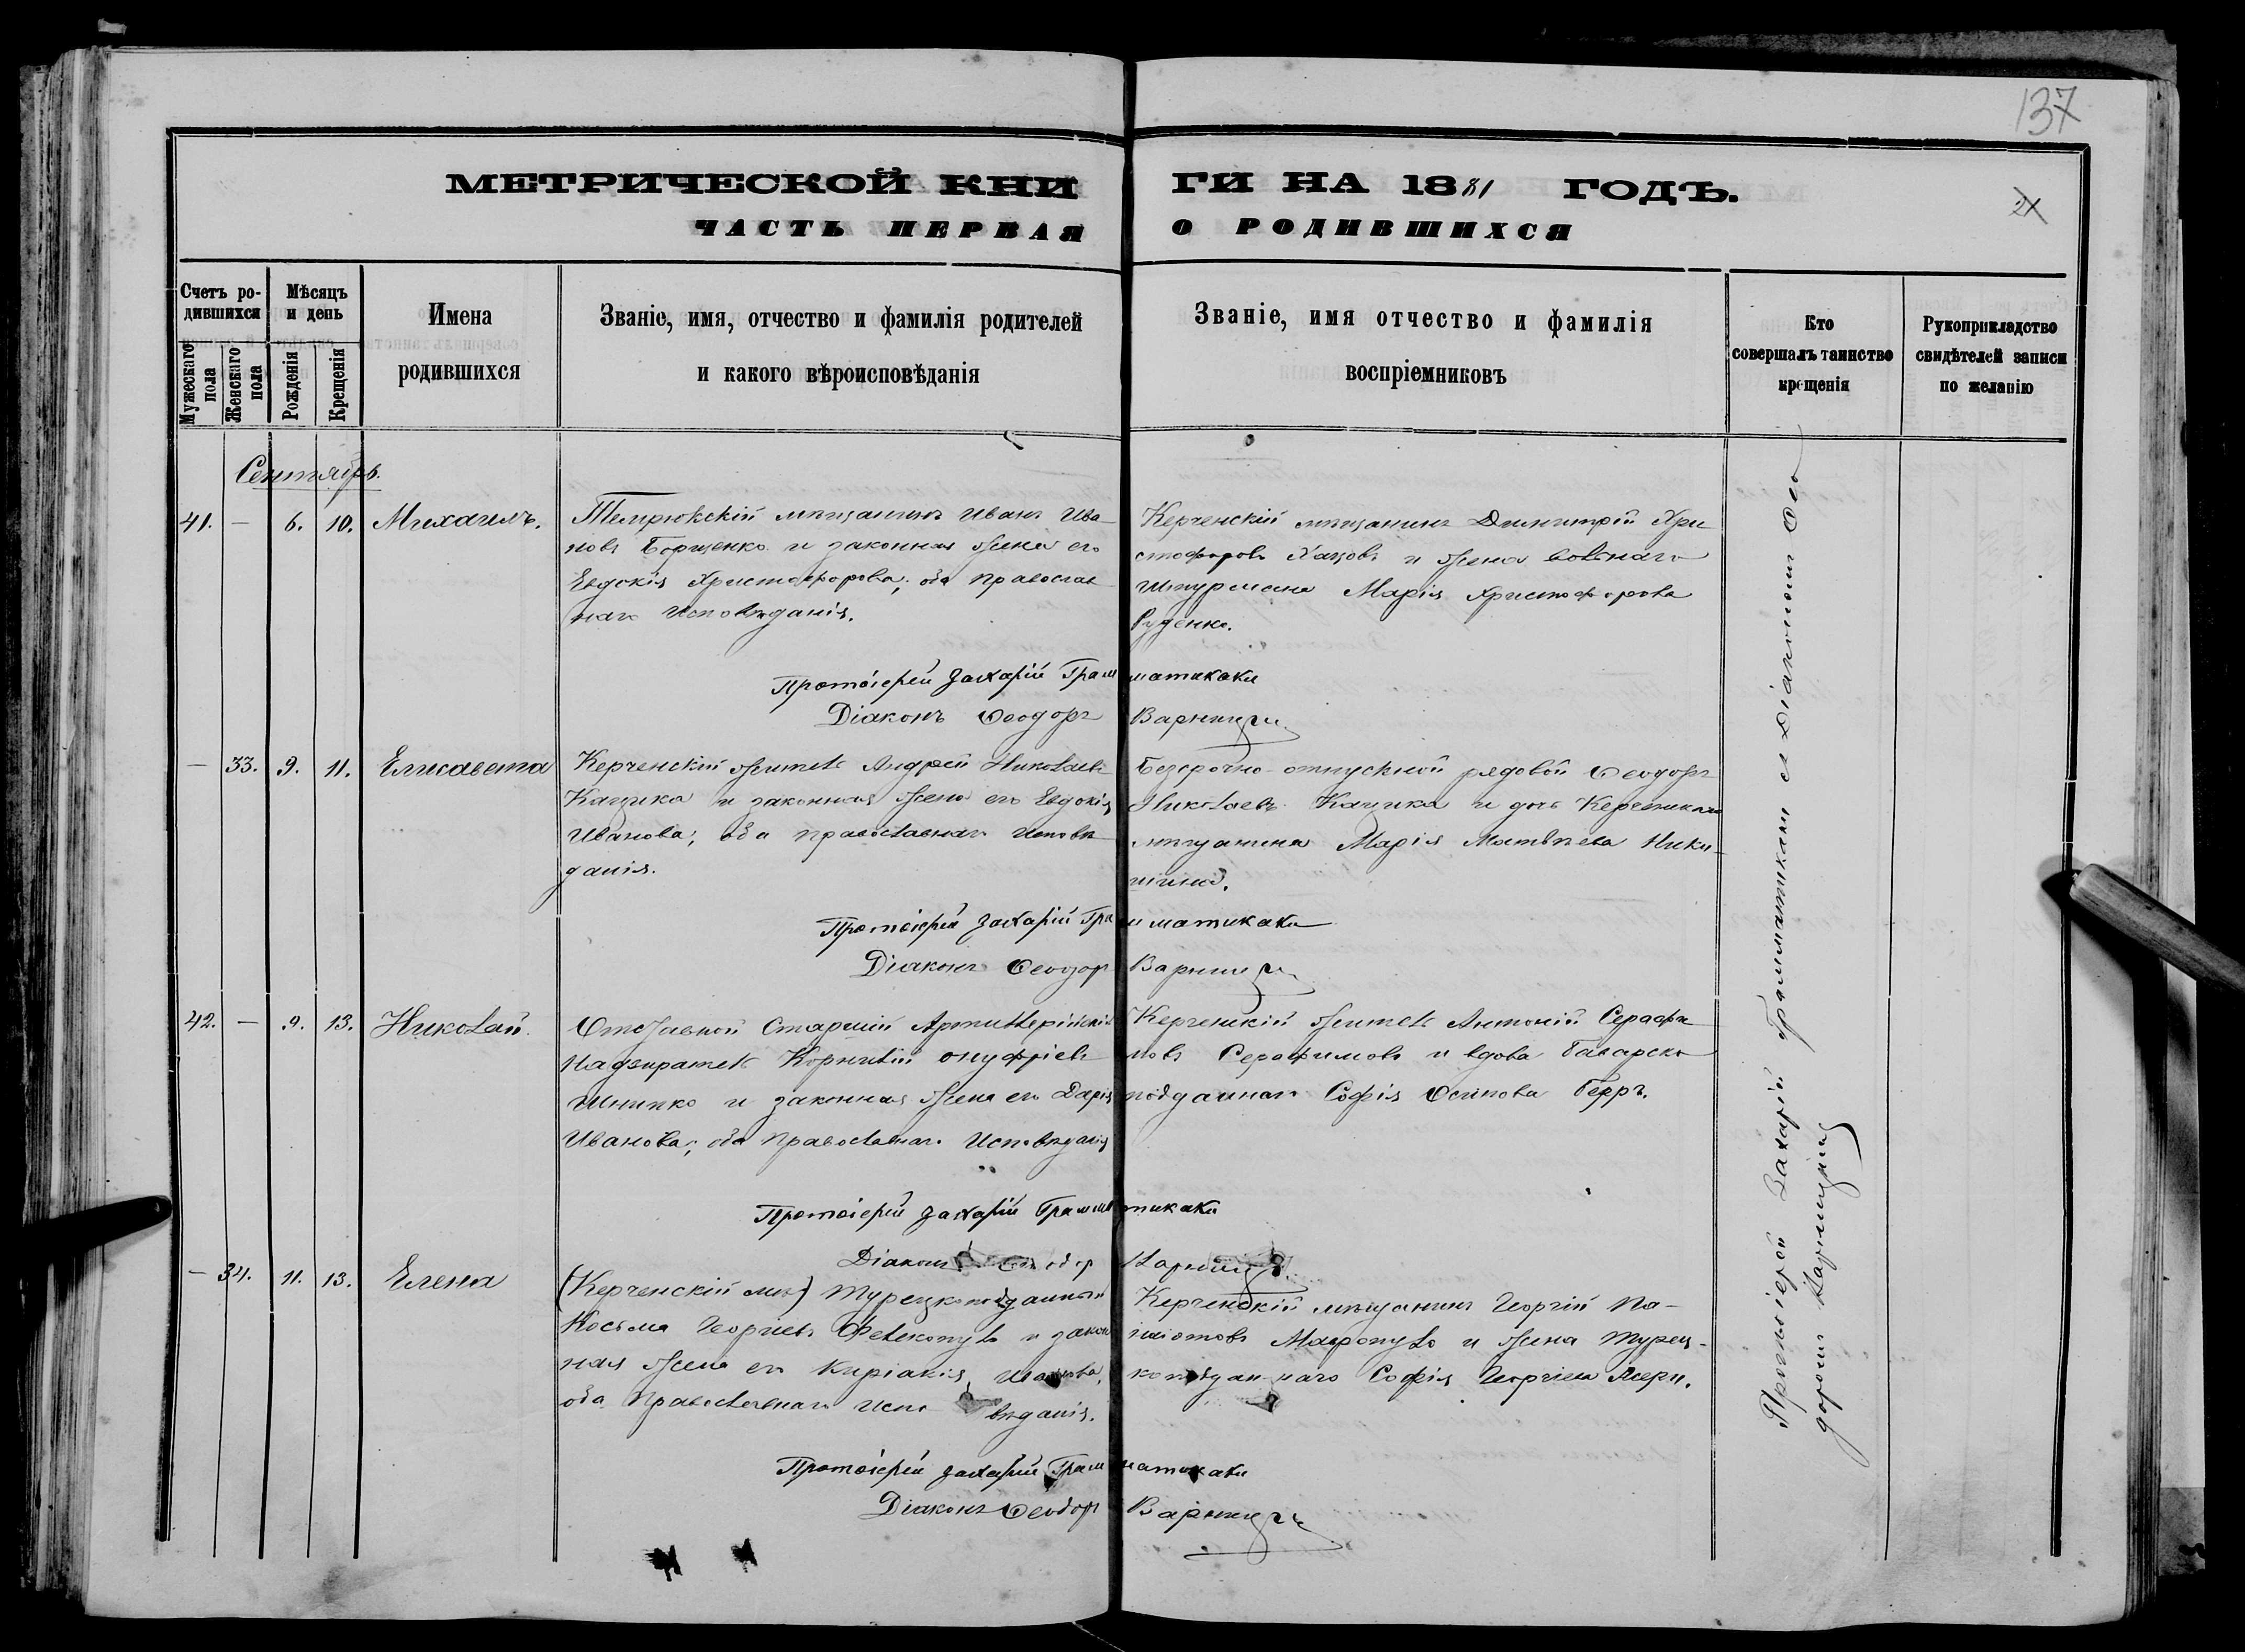 137
МЕТРИЧЕСКОЙ КНИ ГИ НА 1881 ГОДЪ.
ЧАСТЬ ПЕРВАЯ О РОДИВШИХСЯ
Счетъ ро-
дившихся
Мужескаго пола
Женскаго пола
Мѣсяцъ
и день
Рожденія
Крещенія
Имена
родившихся
Званіе, имя, отчество и фамилія родителей
и какого вѣроисповѣданія
Званіе, имя отчество и фамилія
воспріемниковъ
Кто
совершалъ таинство
крещенія
Рукоприкладство
свидѣтелей записи
по желанію
Сентябрь.
41. — 6. 10. Михаилъ.
Темрюкскій мѣщанинъ Иванъ Ива-
новъ Борщенко и законная жена его
Евдокія Христофорова; оба православ
наго исповѣданія.
Керченскій мѣщанинъ Димитрій Хри
стофоровъ и жена
Штурмана Марія Христофорова
Руденко.
Протоіерей Захарій Грамматикаки
Діаконъ Ѳеодоръ
— 33. 9. 11. Елисавета
Керченскій житель Андрей Николаевъ
Кацика и законная жена его Евдокія
Иванова; оба православнаго исповѣ
данія.
Безсрочно-отпускной рядовой Ѳеодоръ
Николаевъ Кацика и дочь Керченскаго
мѣщанина Марія Матвѣева Ники-
Протоіерей Захарій Грамматикаки
Діаконъ Ѳеодоръ
42. — 9. 13. Николай.
Отставной Старшій Артиллерійскій
надзиратель Корнилій Онуфріевъ
и законная жена его Дарія
Иванова; оба православнаго Исповѣданія
Керченскій житель Антоній Серафи
мовъ Серафимовъ и вдова Баварско
подданнаго Софія Осипова Герръ.
Протоіерей Захарій Грамматикаки
Діаконъ Ѳеодоръ
— 34. 11. 13. Елена
(Керченскій мѣщ) Турецкоподданный
Косьма Георгіевъ и закон
ная жена его Киріакія
оба православнаго Испо вѣданія.
Керченскій мѣщанинъ Георгій Па-
и жена Турец-
коподдан-наго Софія Георгіева
Протоіерей Захарій Грамматикаки
Діаконъ Ѳеодоръ
Протоіерей Захарій Грамматикаки и Діакономъ Ѳео
доромъ